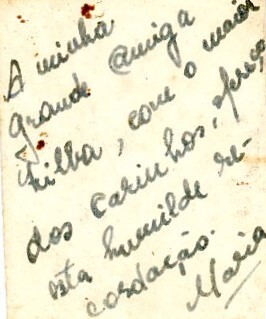 A minha
grande amiga
Filba, com o maior
dos carinhos, ofereço
esta humilde re-
cordação.
Maria